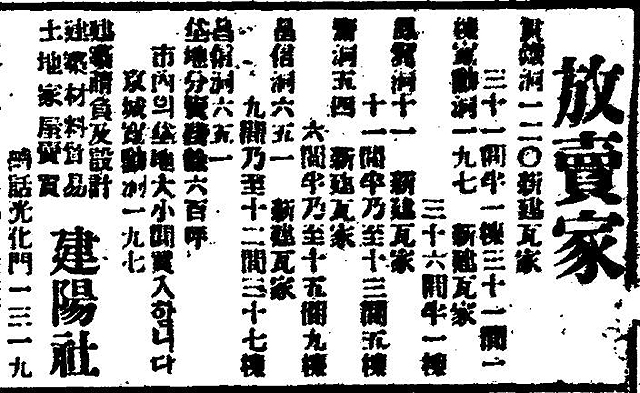 放賣家
貫鐵洞一二〇新建瓦家
三十一間半一棟三十一間一
棟寬勳洞一九七 新建瓦家
三十六間半一棟
鳳翼洞十一 新建瓦家
十一間半乃至十三間五棟
齋洞五四 新建瓦家
六間半乃至十五間九棟
昌信洞六五一 新建瓦家
九間乃至十二間三十七棟
昌信洞六五一
垈地分賣殘餘六百坪
市內의垈地大小間買入합니다
京城寬勳洞一九七
建築請負及設計
建築材料貿易
土地家屋賣買
建陽社
電話光化門一三一九